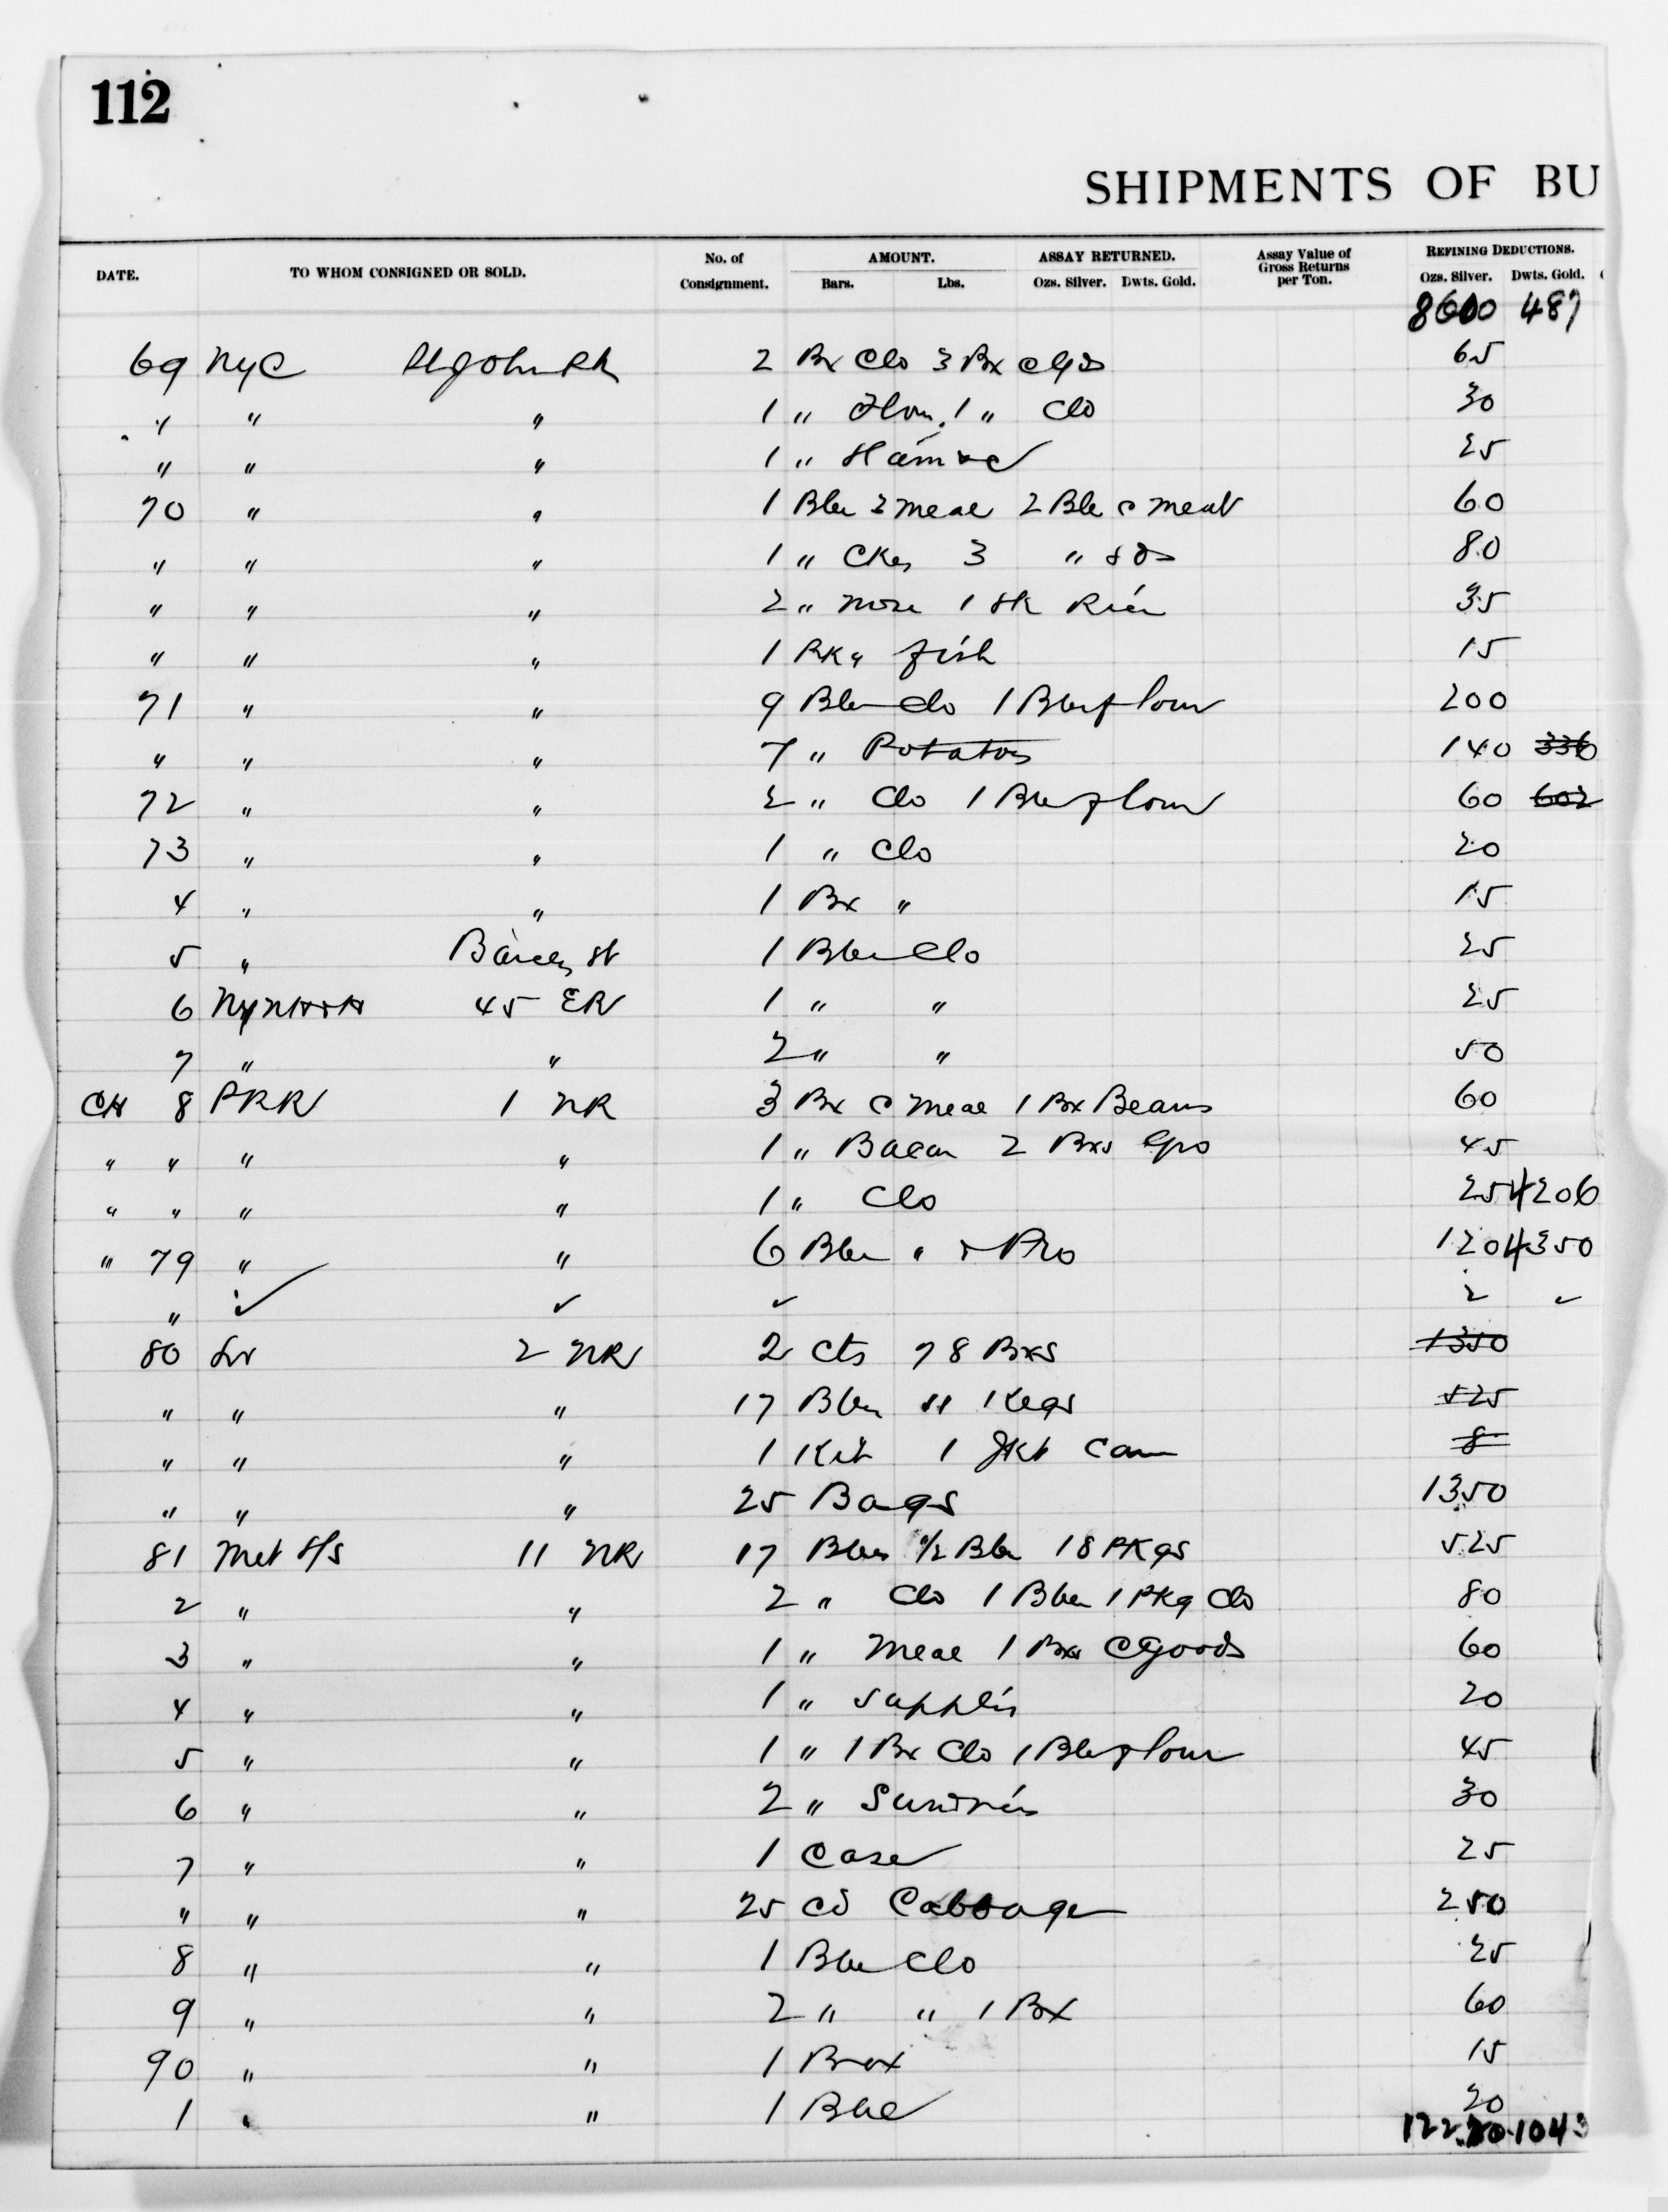 112
SHIPMENTS OF BU
DATE. TO WHOM CONSIGNED OR SOLD. No. of Consignment. AMOUNT. Bars. Lbs. ASSAY RETURNED. Ozs. Silver. Dwts. Gold. Assay Value of Gross Returns per Ton. REFINING DEDUCTIONS. Ozs. Silver. Dwts. Gold.
8600 487
69 NYC St John Pk 2 Bx Clo 3 Bx 65
" " " 1 " 1 " Clo 30
" " " 1 " 25
70 " " 1 2 C meal 60
" " " 1 " Ckes 3 " 80
" " " 2 " 1 sk 35
" " " 1 PKg fish 15
71 " " 9 Clo 1 flour 200
" " " 7 " Potatoes 140 336
72 " " 2 " Clo 1 flour 60 602
73 " " 1 " Clo 20
4 " " 1 Bx " 15
5 " Barcly St 1 Clo 25
6 NYNH&H 45 ER 1 " " 25
7 " " 2 " " 50
CH 8 PRR 1 NR 3 Bx C 1 Bx Beans 60
" " " " 1 " Bacon 2 Bxs Gro 45
" " " " 1 " Clo 25 4206
" 79 " " 6 " & Pro 120 4350
"
80 2 NR 2 cts 78 Bxs 1350
" " " 17 11 Kegs 525
" " " 1 Kit 1 Can 8
" " " 25 Bags 1350
81 Met S/S 11 NR 17 1/2 18 PKgs 525
2 " " 2 " Clo 1 1 PKg Clo 80
3 " " 1 " 1 Bx C Goods 60
4 " " 1 " Supplis 20
5 " " 1 " 1 Bx Clo 1 flour 45
6 " " 2 " Sundries 30
7 " " 1 Case 25
" " " 25 Cabbage 250
8 " " 1 Clo 25
9 " " 2 " " 1 Bx 60
90 " " 1 Box 15
1 " " 1 20
1043